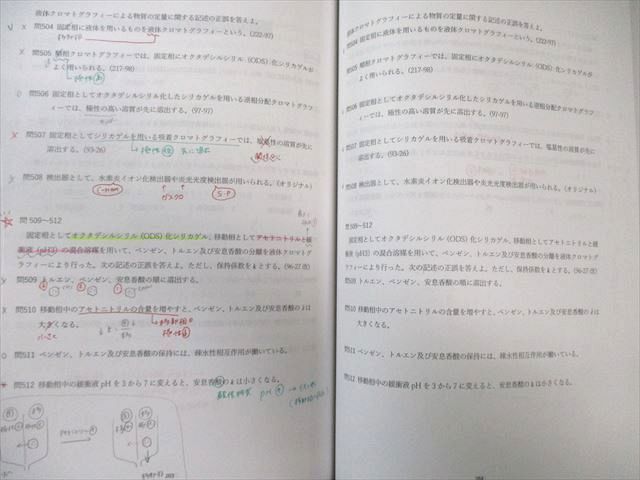 液体クロマトグラフィーによる物質の定量に関する記述の正誤を答えよ。
問504 固定相に液体を用いるものを液体クロマトグラフィーという。(222-97)
問505 順相クロマトグラフィーでは、固定相にオクタデシルシリル(ODS)化シリカゲルが
よく用いられる。(217-98)
問506 固定相としてオクタデシルシリル化したシリカゲルを用いる逆相分配クロマトグラフ
ィーでは、極性の高い溶質が先に溶出する。(97-97)
問507 固定相としてシリカゲルを用いる吸着クロマトグラフィーでは、塩基性の溶質が先に
溶出する。(93-26)
問508 検出器として、水素炎イオン化検出器や炎光光度検出器が用いられる。(オリジナル)
問509〜512
固定相としてオクタデシルシリル(ODS)化シリカゲル、移動相としてアセトニトリルと緩
衝液(pH3)の混合溶媒を用いて、ベンゼン、トルエン及び安息香酸の分離を液体クロマトグ
ラフィーにより行った。次の記述の正誤を答えよ。ただし、保持係数をkとする。(96-27改)
問509 トルエン、ベンゼン、安息香酸の順に溶出する。
問510 移動相中のアセトニトリルの含量を増やすと、ベンゼン、トルエン及び安息香酸のkは
大きくなる。
小さく
問511 ベンゼン、トルエン及び安息香酸の保持には、疎水性相互作用が働いている。
問512 移動相中の緩衝液pHを3から7に変えると、安息香酸のkは小さくなる。
液体クロマトグラフィーによる物質の定量に関する記述の正誤を答えよ。
問504 固定相に液体を用いるものを液体クロマトグラフィーという。(222-97)
問505 順相クロマトグラフィーでは、固定相にオクタデシルシリル(ODS)化シリカゲルが
よく用いられる。(217-98)
問506 固定相としてオクタデシルシリル化したシリカゲルを用いる逆相分配クロマトグラフ
ィーでは、極性の高い溶質が先に溶出する。(97-97)
問507 固定相としてシリカゲルを用いる吸着クロマトグラフィーでは、塩基性の溶質が先に
溶出する。(93-26)
問508 検出器として、水素炎イオン化検出器や炎光光度検出器が用いられる。(オリジナル)
問509〜512
固定相としてオクタデシルシリル(ODS)化シリカゲル、移動相としてアセトニトリルと緩
衝液(pH3)の混合溶媒を用いて、ベンゼン、トルエン及び安息香酸の分離を液体クロマトグ
ラフィーにより行った。次の記述の正誤を答えよ。ただし、保持係数をkとする。(96-27改)
問509 トルエン、ベンゼン、安息香酸の順に溶出する。
問510 移動相中のアセトニトリルの含量を増やすと、ベンゼン、トルエン及び安息香酸のkは
大きくなる。
問511 ベンゼン、トルエン及び安息香酸の保持には、疎水性相互作用が働いている。
問512 移動相中の緩衝液pHを3から7に変えると、安息香酸のkは小さくなる。